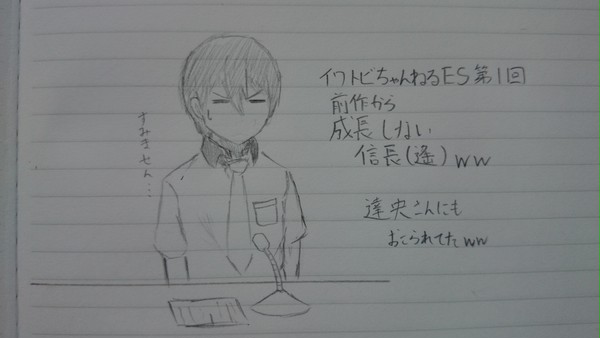 イワトビちゃんねるES第1回
前作から
成長しない
信長(遥)ww
達央さんにも
おこられてたww
すみません…